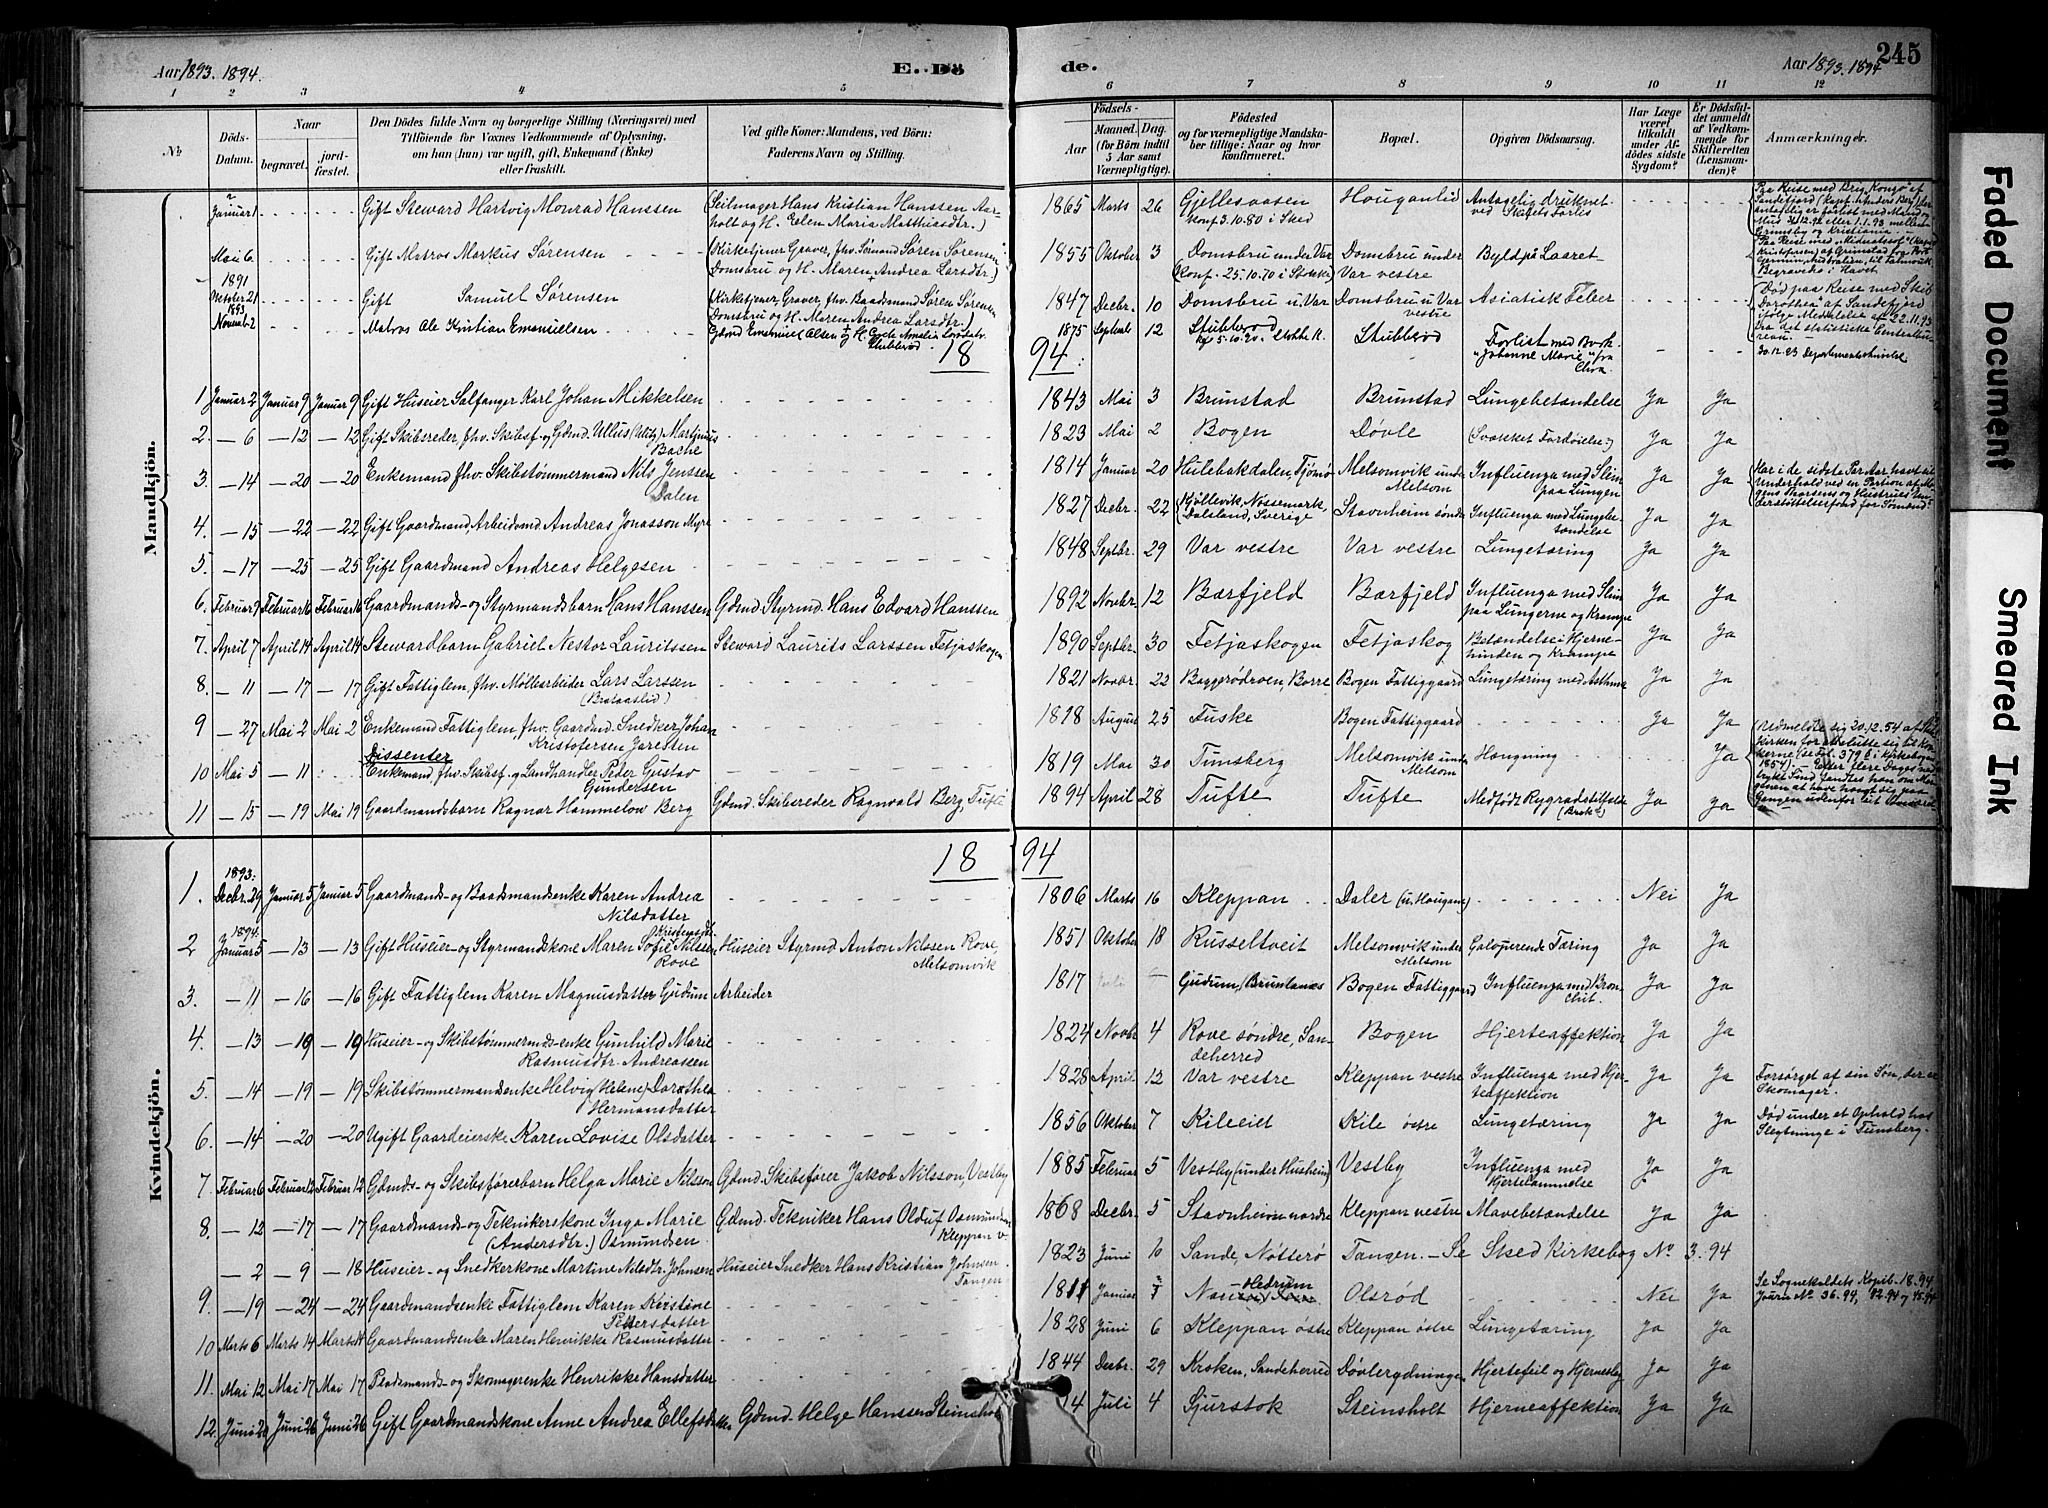 Aar 1893. 1894.
E. Dö
de.
Aar 1893. 1894
245
1 2 3 4 5 6 7 8 9 10 11 12
№
Döds-Datum.
Naar
begravet.
jord-fæstet.
Den Dödes fulde Navn og borgerlige Stilling (Næringsvei) med
Tilföiende for Voxnes Vedkommende af Oplysning,
om han (hun) var ugift, gift, Enkemand (Enke)
eller fraskilt.
Ved gifte Koner: Mandens, ved Börn:
Faderens Navn og Stilling.
Födsels-
Aar
Maaned.
(for Börn indtil
5 Aar samt
Værnepligtige).
Dag.
Födested
og for værnepligtige Mandska-
ber tillige: Naar og hvor
konfirmeret.
Bopæl.
Opgiven Dödsaarsag.
Har Læge
været
tilkaldt
under Af-
dödes sidste
Sygdom?
Er Dödsfal-
det anmeldt
af Vedkom-
mende for
Skifteretten
(Lensman-
den)?
Anmærkninger.
Mandkjön.
Januar 1 Gift Steward Hartvig Monrad Hanssen (Seilmager Hans Kristian Hanssen Aar-
holt og H. Elen Maria Matthiasdtr.) 1865 Marts 26 Gjellesaasen
Konf. 3.10.80 i Sked Houganlid Antagelig druknet
ved Skibets Forlis
Mai 6 Gift Matros Markus Sørensen (Kirketjener, Graver, fhv. Sømand Søren Sørensen
Domsbru og H. Maren Andrea Larsdtr.) 1855 Oktober 3 Domsbru under Var
(Konf. 25.10.70 i Stokke) Domsbru under
Var vestre Byld paa Laaret
Begravedes i Havet
1891
Oktober 21 Gift Samuel Sørensen (Kirketjener, Graver, fhv. Baadsmand Søren Sørensen
Domsbru og H. Maren Andrea Larsdtr.) 1847 Decbr. 10 Domsbru u. Var Domsbru u. Var
vestre Asiatisk Feber
Død paa Reise med Skib
Dorothea af Sandefjord
1893
Novemb. 2 Matros Ole Kristian Emanuelsen Gdmd. Emanuel Olsen og H.
Stubberød 1875 Septemb. 12 Stubberød Stubberød Forlist med Bark
"Johanne Marie" fra
Chra.
18 94
1 Januar 2 Januar 9 Januar 9 Gift Huseier Sælfanger Karl Johan Mikkelsen 1843 Mai 3 Brunstad Brunstad Lungebetændelse Ja Ja
2. — 6 — 12 — 12 Gift Skibsreder, fhv. Skibsf. og Gdmd. Ullus (Ulitz) Martinius
Bache 1823 Mai 2 Bogen Døvle (Svækket Fordøielse) Ja Ja
3. — 14 — 20 — 20 Enkemand fhv. Skibstømmermand Nils Jenssen
Dalen 1814 Januar 20 Hulebakdalen, Tjømø Melsomvik under
Melsom Influenza med Slim
paa Lungen Ja Ja
4. — 15 — 22 — 22 Gift Gaardmand, Arbeidsmd Andreas Jonasson Myre 1827 Decbr. 22 Kjøllevik, Nøssemark,
Dalsland, Sverige Stavnheim søndre Influenza med Lungebe-
tændelse Ja Ja
5. — 17 — 25 — 25 Gift Gaardmand Andreas Helgesen 1848 Septbr. 29 Var vestre Var vestre Lungetæring Ja Ja
6. Februar 9 Februar 16 Februar 16 Gaardmands- og Styrmandsbarn Hans Hanssen Gdmd. Styrmd. Hans Edvard Hanssen 1892 Novbr. 12 Barfjeld Barfjeld Influenza med Slim
paa Lungerne og Krampe Ja Ja
7. April 7 April 14 April 14 Stewardbarn Gabriel Nestor Lauritssen Steward Laurits Larssen Fetjaskogen 1890 Septbr. 30 Fetjaskogen Fetjaskog Betændelse i Hjerne-
hinden og Krampe Ja Ja
8. — 11 — 17 — 17 Gift Fattiglem, fhv. Møllearbeider Lars Larssen
(Brataaslid) 1821 Novbr. 22 Baggerødroen, Borre Bogen Fattiggaard Lungetæring med Asthma Ja Ja
9 — 27 Mai 2 Mai 2 Enkemand Fattiglem, fhv. Gaardmd. Snedker Johan
Kristofersen Jaresten 1818 August 25 Fuske Bogen Fattiggaard Ja Ja
Dissenter
10 Mai 5 — 11 Enkemand fhv. Skibsf. og Landhandler Peder Gustav
Gundersen 1819 Mai 30 Tunsberg Melsomvik under
Melsom Hængning Ja
11 — 15 — 19 Mai 19 Gaardmandsbarn Ragnar Hammelow Berg Gdmd. Skibsreder Ragnvald Berg, Tufte 1894 April 28 Tufte Tufte Medfødt Rygradstilfælde
(Brok) Ja Ja
Kvindekjön.
18 94
1893:
1. Decbr. 29 Januar 5 Januar 5 Gaardmands- og Baadsmandsenke Karen Andrea
Nilsdatter 1806 Marts 16 Kleppan Daler (u. Hougan) Nei Ja
1894.
2 Januar 5 — 13 — 13 Gift Huseier- og Styrmandskone Maren Sofie Nilssen
Rove Huseier Styrmd Anton Nilssen Rove,
Melsomvik 1851 Oktober 18 Russeltveit Melsomvik under
Melsom Galoperende Tæring Ja Ja
3. — 11 — 16 — 16 Gift Fattiglem Karen Magnusdatter Gudum Arbeider 1817 Gudum, (Brunlanæs Bogen Fattiggaard Influenza med Bron-
chit. Ja Ja
4. — 13 — 19 — 19 Huseier- og Skibstømmermdsenke Gunhild Marie
Rasmusdtr. Andreassen 1824 Novbr 4 Rove søndre, San-
deherred Bogen Hjerteaffektion Ja Ja
5. — 14 — 19 — 19 Skibstømmermandsenke Helvig (Helene) Dorothea
Hermansdatter 1828 April 12 Var vestre Kleppan vestre Influenza med Hjer-
teaffektion Ja Ja Forsørget af sin Søn, der er
Skomager.
6. — 14 — 20 — 20 Ugift Gaardeierske Karen Lovise Olsdatter 1856 Oktober 7 Kileeiet Kile østre Lungetæring Ja Ja Død under et Ophold hos
Slegtninge i Tunsberg.
7. Februar 6 Februar 12 Februar 12 Gdmds- og Skibsførerbarn Helga Marie Nilsson Gdmd. Skibsfører Jakob Nilsson, Vestby 1885 Februar 5 Vestby (under Husheim) Vestby Influenza med
Hjertelammelse Ja Ja
8. — 12 — 17 — 17 Gaardmands- og Teknikerskone Inga Marie
(Andersdtr.) Osmundsen Gdmd. Tekniker Hans Olduf Osmundsen
Kleppan v. 1868 Decbr. 5 Stavnheim nordre Kleppan vestre Mavebetændelse Ja Ja
— 2 — 9 — 18 Huseier- og Snedkerkone Martine Nilsdtr. Johnsen Huseier Snedker Hans Kristian Johnsen
Tangen 1823 Juni 6 Sande, Nøtterø Tangen. — Se Sked Kirkebog No 3. 94
9. — 19 — 24 — 24 Gaardmandsenke Fattiglem Karen Kirstine
Pedersdatter 1811 Januar Hedrum Olsrød Nei Ja Se Sognekaldets Kopib. 18. 94
Journ No. 36.94, 42.94 og 45.94
10 Marts 6 Marts 14 Marts 14 Gaardmandsenke Maren Henrikke Rasmusdatter 1828 Juni 6 Kleppan østre Kleppan østre Lungetæring Ja Ja
11. Mai 12 Mai 17 Mai 17 Pladsmands- og Skomagerenke Henrikke Hansdatter 1844 Decbr. 29 Krsken, Sandeherred Døvlerydningen Hjertefeil og Hjerneslag Ja Ja
12. Juni 20 Juni 26 Juni 26 Gift Gaardmandskone Anne Andrea Ellefsdatter Gdmd. Helge Hanssen Steinsholt 14 Juli 4 Sjursstok Steinsholt Hjerneaffektion Ja Ja
Faded Document
Smeared Ink